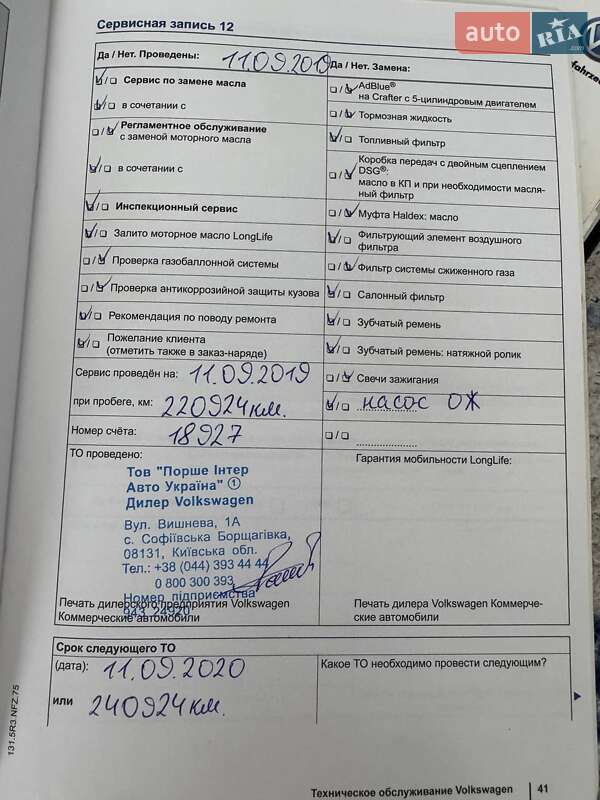 Сервисная запись 12
auto RIA .com
fahrze
Да / Нет. Проведены: 11.09.2019
Да / Нет. Замена:
Сервис по замене масла
в сочетании с
Регламентное обслуживание
с заменой моторного масла
в сочетании с
Инспекционный сервис
Залито моторное масло LongLife
Проверка газобаллонной системы
Проверка антикоррозийной защиты кузова
Рекомендация по поводу ремонта
Пожелание клиента
(отметить также в заказ-наряде)
AdBlue®
на Crafter с 5-цилиндровым двигателем
Тормозная жидкость
Топливный фильтр
Коробка передач с двойным сцеплением
DSG®:
масло в КП и при необходимости масля-
ный фильтр
Муфта Haldex: масло
Фильтрующий элемент воздушного
фильтра
Фильтр системы сжиженного газа
Салонный фильтр
Зубчатый ремень
Зубчатый ремень: натяжной ролик
Свечи зажигания
насос ОЖ
Сервис проведён на: 11.09.2019
при пробеге, км: 220924 км.
Номер счёта: 18927
ТО проведено:
Тов "Порше Інтер
Авто Україна" 1
Дилер Volkswagen
Вул. Вишнева, 1А
с. Софіївська Борщагівка,
08131, Київська обл.
Тел.: +38 (044) 393 44 44
0 800 300 393
Номер підприємства
943 24920
Печать дилерского предприятия Volkswagen
Коммерческие автомобили
Гарантия мобильности LongLife:
Печать дилера Volkswagen Коммерче-
ские автомобили
Срок следующего ТО
(дата): 11.09.2020
или 240924 км.
Какое ТО необходимо провести следующим?
131.5R3.NFZ.75
Техническое обслуживание Volkswagen 41